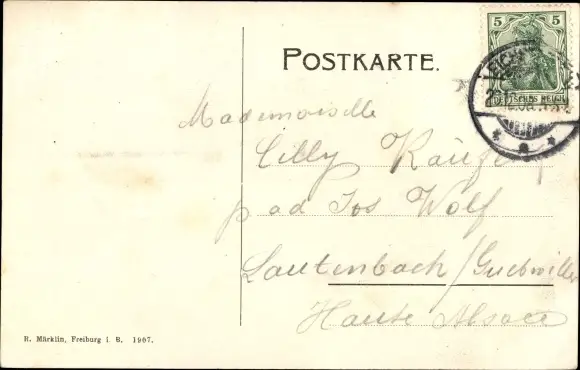 POSTKARTE.
5 5
DEUTSCHES REICH
Mademoiselle
Cilly
p ad Jos Wolf
Lautenbach / Guebwiller
Haute Alsace
R. Märklin, Freiburg i. B. 1907.